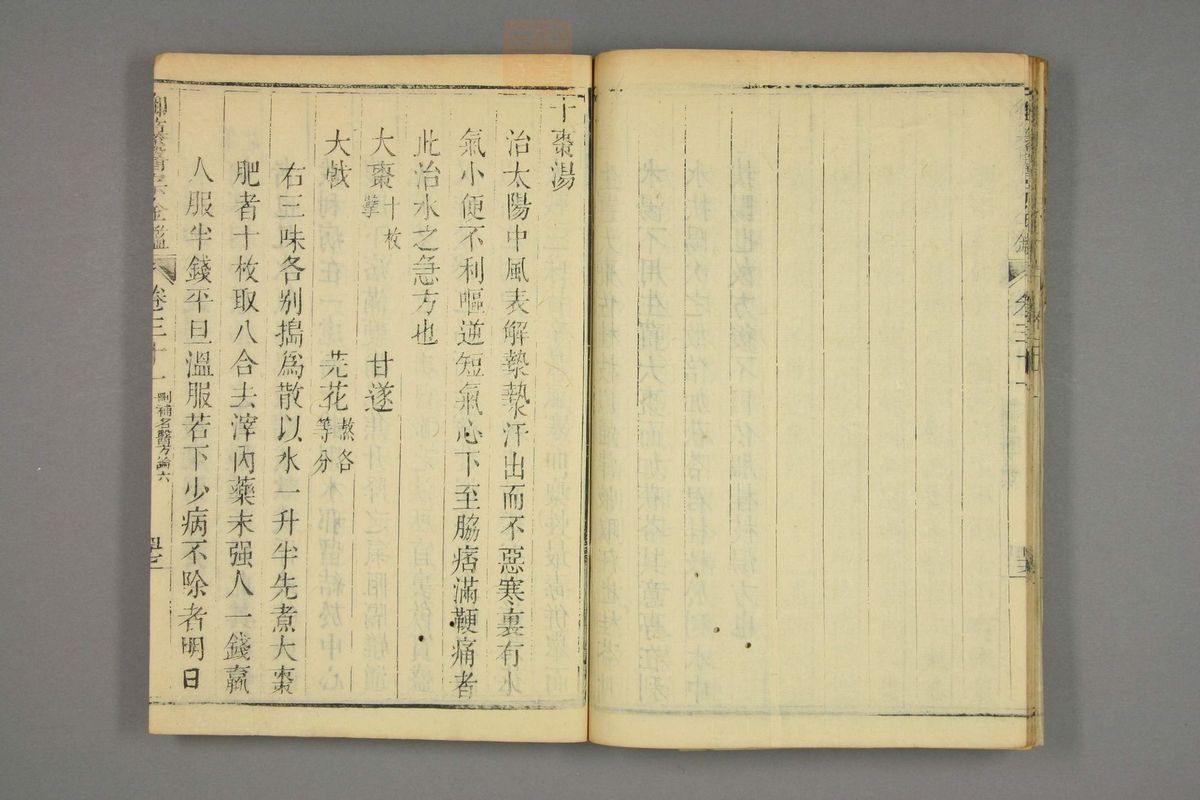 十棗湯
治太陽中風表解褺𤍠汗出而不惡寒裏有水
氣小便不利嘔逆短氣心下至脇痞滿鞕痛者
此治水之急方也
大棗十枚擘 甘遂
大戟 芫花熬各等分
右三味各别搗爲散以水一升半先煮大棗
肥者十枚取八合去滓內藥末强人一錢羸
人服半錢平旦溫服若下少病不除者明日
醫宗金鑑 卷三十一 刪補名醫方論六
卷三十一